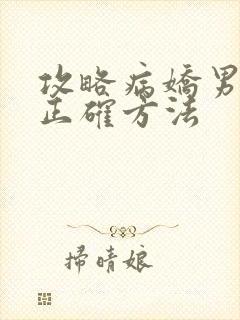 攻略病嬌男
正確方法
掃晴娘